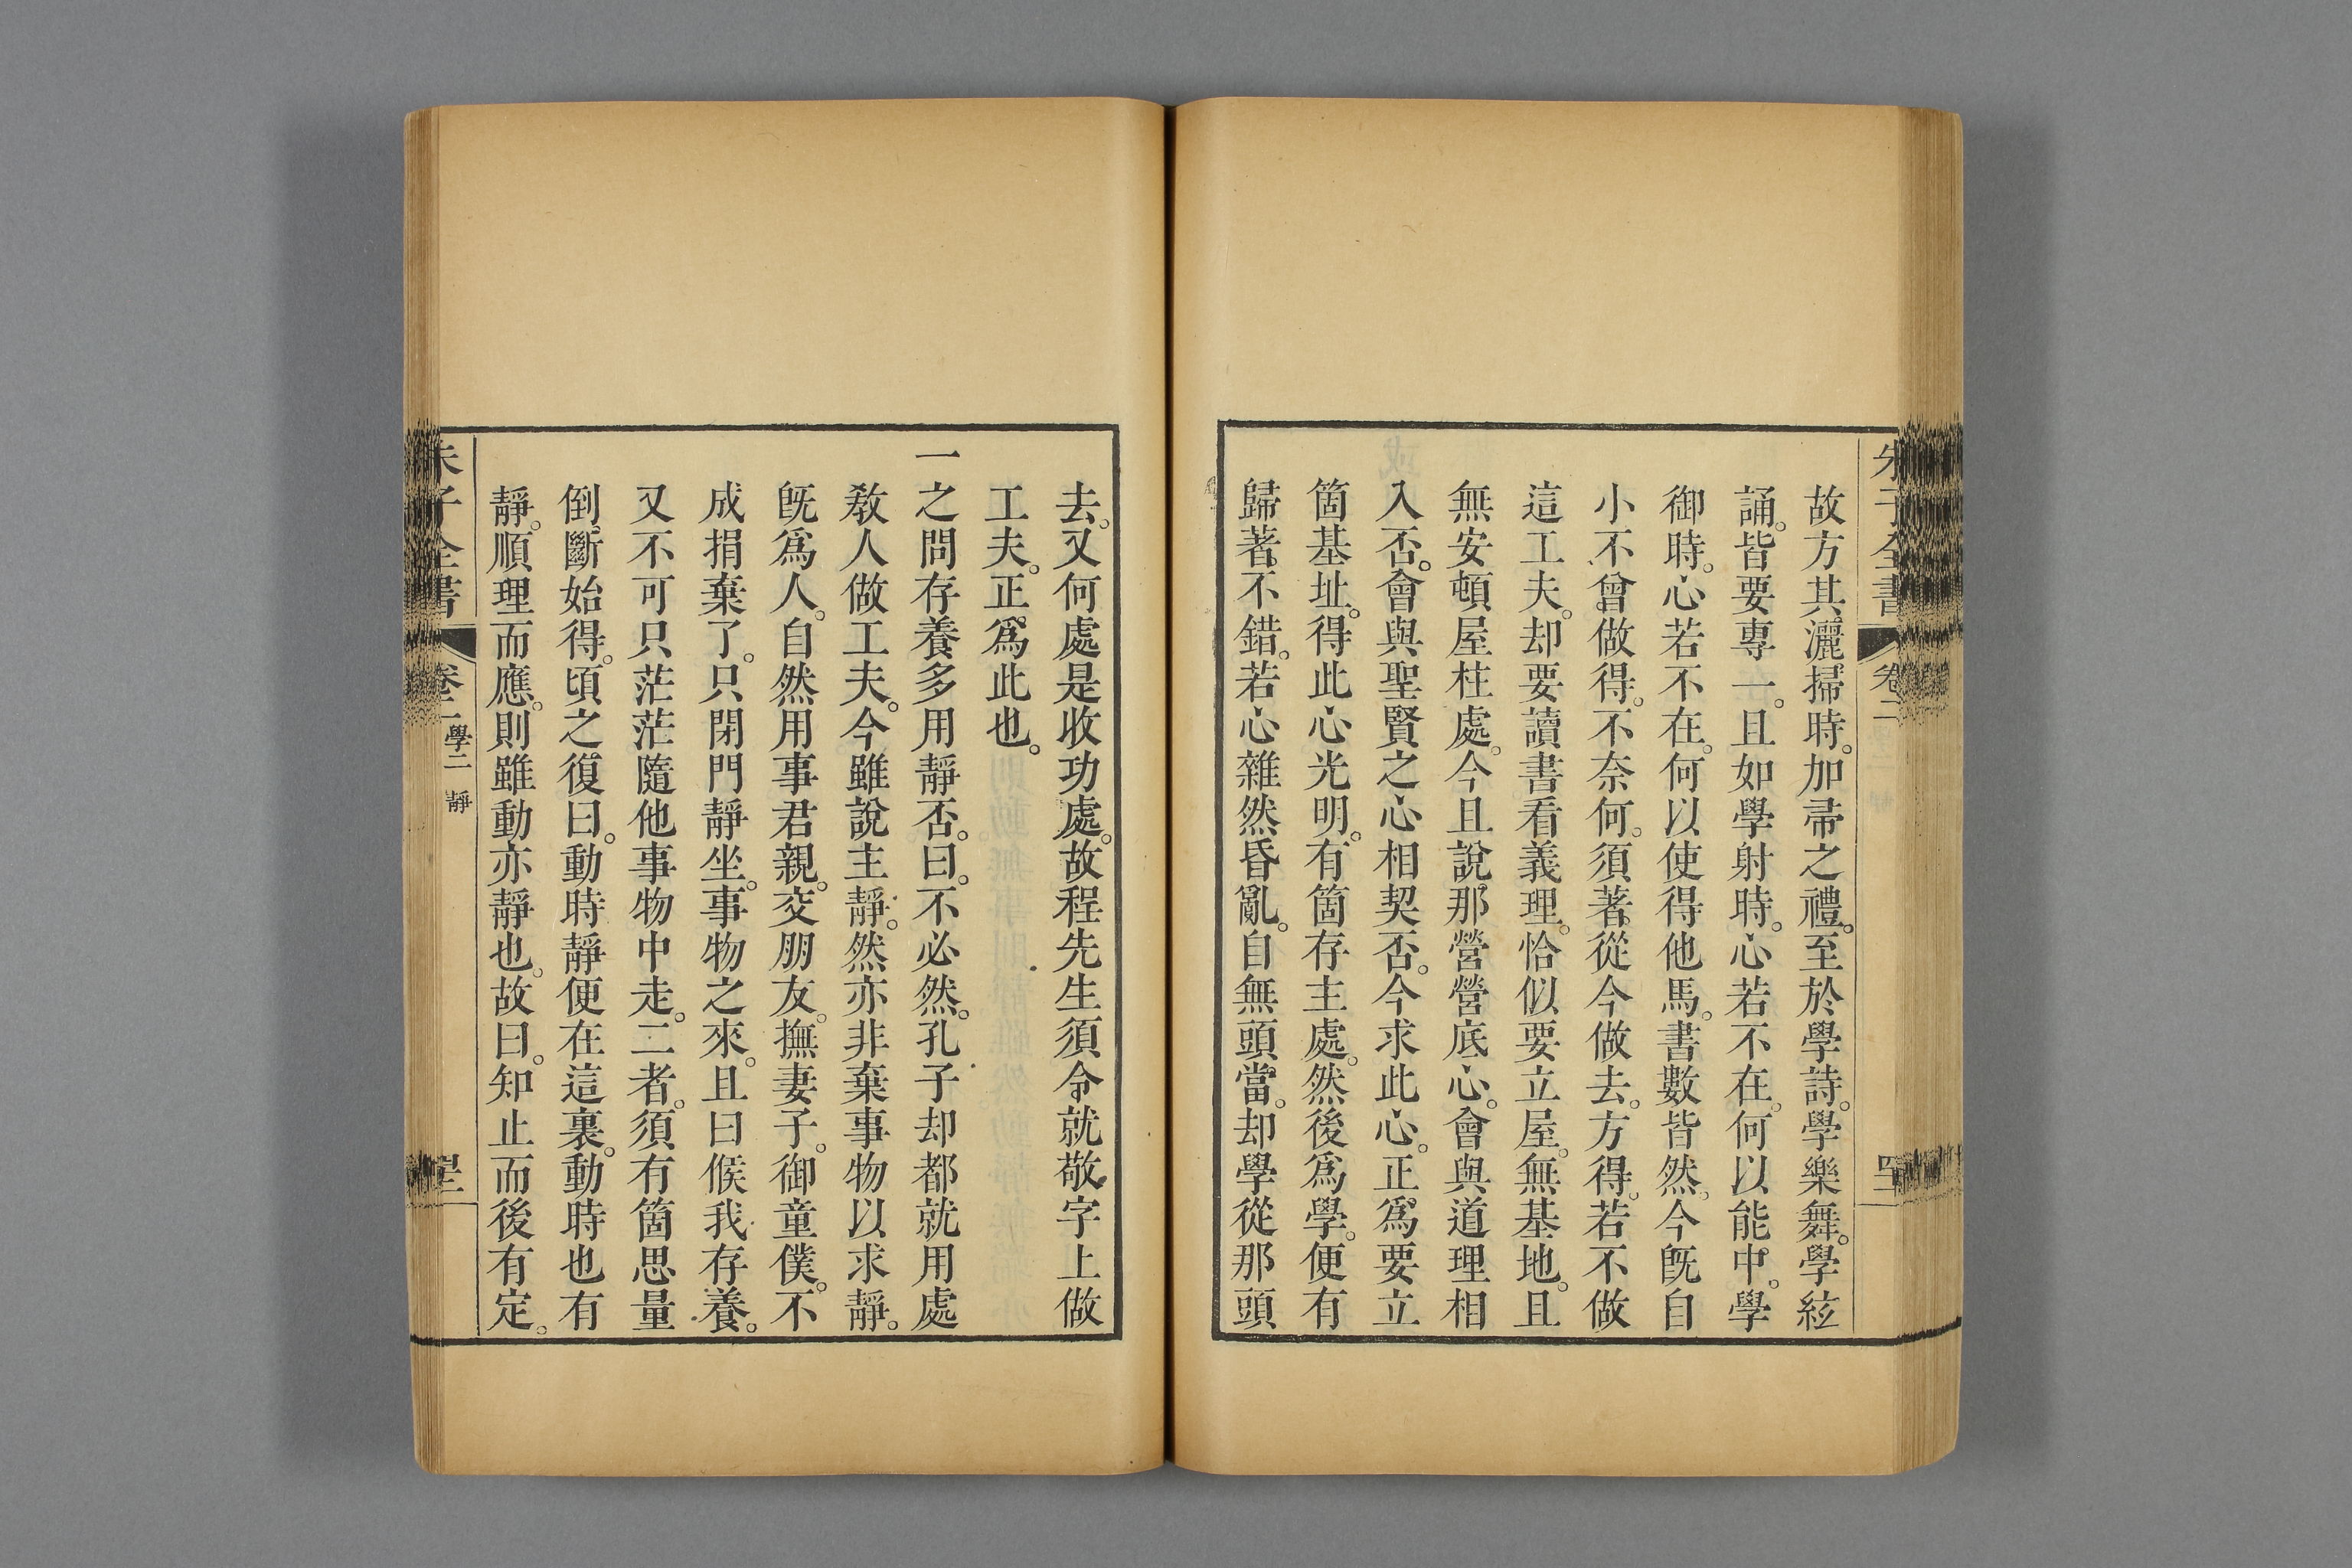 朱子全書 卷二
故方其灑掃時。加帚之禮。至於學詩。學樂舞。學絃
誦。皆要專一。且如學射時。心若不在。何以能中。學
御時。心若不在。何以使得他馬。書數皆然。今旣自
小不曾做得。不奈何。須著從今做去。方得。若不做
這工夫。却要讀書看義理。恰似要立屋。無基地。且
無安頓屋柱處。今且說那營營底心。會與道理相
入否。會與聖賢之心相契否。今求此心。正爲要立
箇基址。得此心光明。有箇存主處。然後爲學。便有
歸著不錯。若心雜然昏亂。自無頭當。却學從那頭
去。又何處是收功處。故程先生須令就敬字上做
工夫。正爲此也。
一之問存養多用靜否。曰。不必然。孔子却都就用處
敎人做工夫。今雖說主靜。然亦非棄事物以求靜。
旣爲人。自然用事君親。交朋友。撫妻子。御童僕。不
成捐棄了。只閉門靜坐。事物之來。且曰候我存養。
又不可只茫茫隨他事物中走。二者。須有箇思量
倒斷始得。頃之復曰。動時靜便在這裏。動時也有
靜。順理而應。則雖動亦靜也。故曰。知止而後有定。
朱子全書 卷二 學二 靜